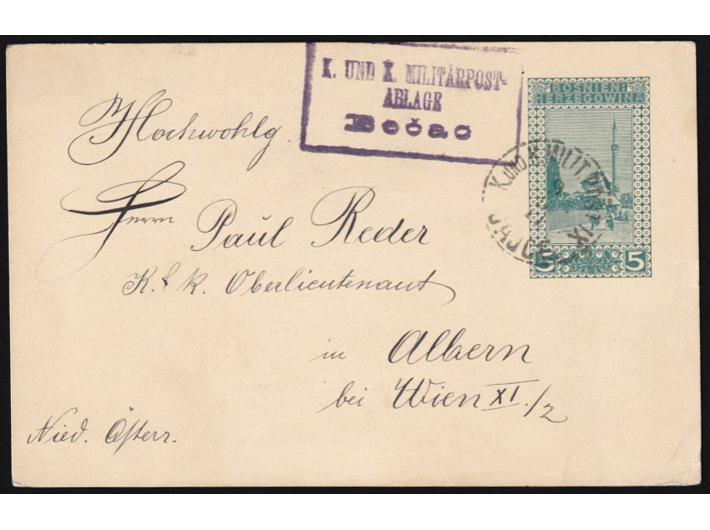 K. UND K. MILITÄRPOST-
ABLAGE
Bočac
BOSNIEN
HERZEGOWINA
5 5
K. UND K. MILIT. POST
JAJCE
Hochwohlg.
Herrn Paul Reder
K. & k. Oberlieutenant
in Albern
bei Wien XI./2
Nied. Österr.